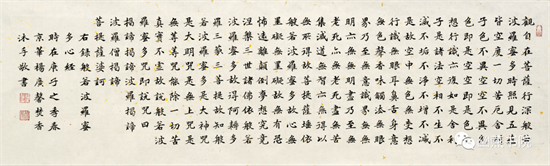 觀自在菩薩行深般若
波羅蜜多時照見五蘊
皆空度一切苦厄舍利
子色不異空空不異色
色即是空空即是色受
想行識亦復如是舍利
子是諸法空相不生不
滅不垢不淨不增不減
是故空中無色無受想
行識無眼耳鼻舌身意
無色聲香味觸法無眼
界乃至無意識界無無
明亦無無明盡乃至無
老死亦無老死盡無苦
集滅道無智亦無得以
無所得故菩提薩埵依
般若波羅蜜多故心無
罣礙無罣礙故無有恐
怖遠離顛倒夢想究竟
涅槃三世諸佛依般若
波羅蜜多故得阿耨多
羅三藐三菩提故知般
若波羅蜜多是大神咒
是大明咒是無上咒是
無等等咒能除一切苦
真實不虛故說般若波
羅蜜多咒即說咒曰
揭諦揭諦波羅揭諦
波羅僧揭諦
菩提薩婆訶
右錄般若波羅蜜
多心經
時在庚子之秀春
京華楊廣馨焚香
沐手敬書